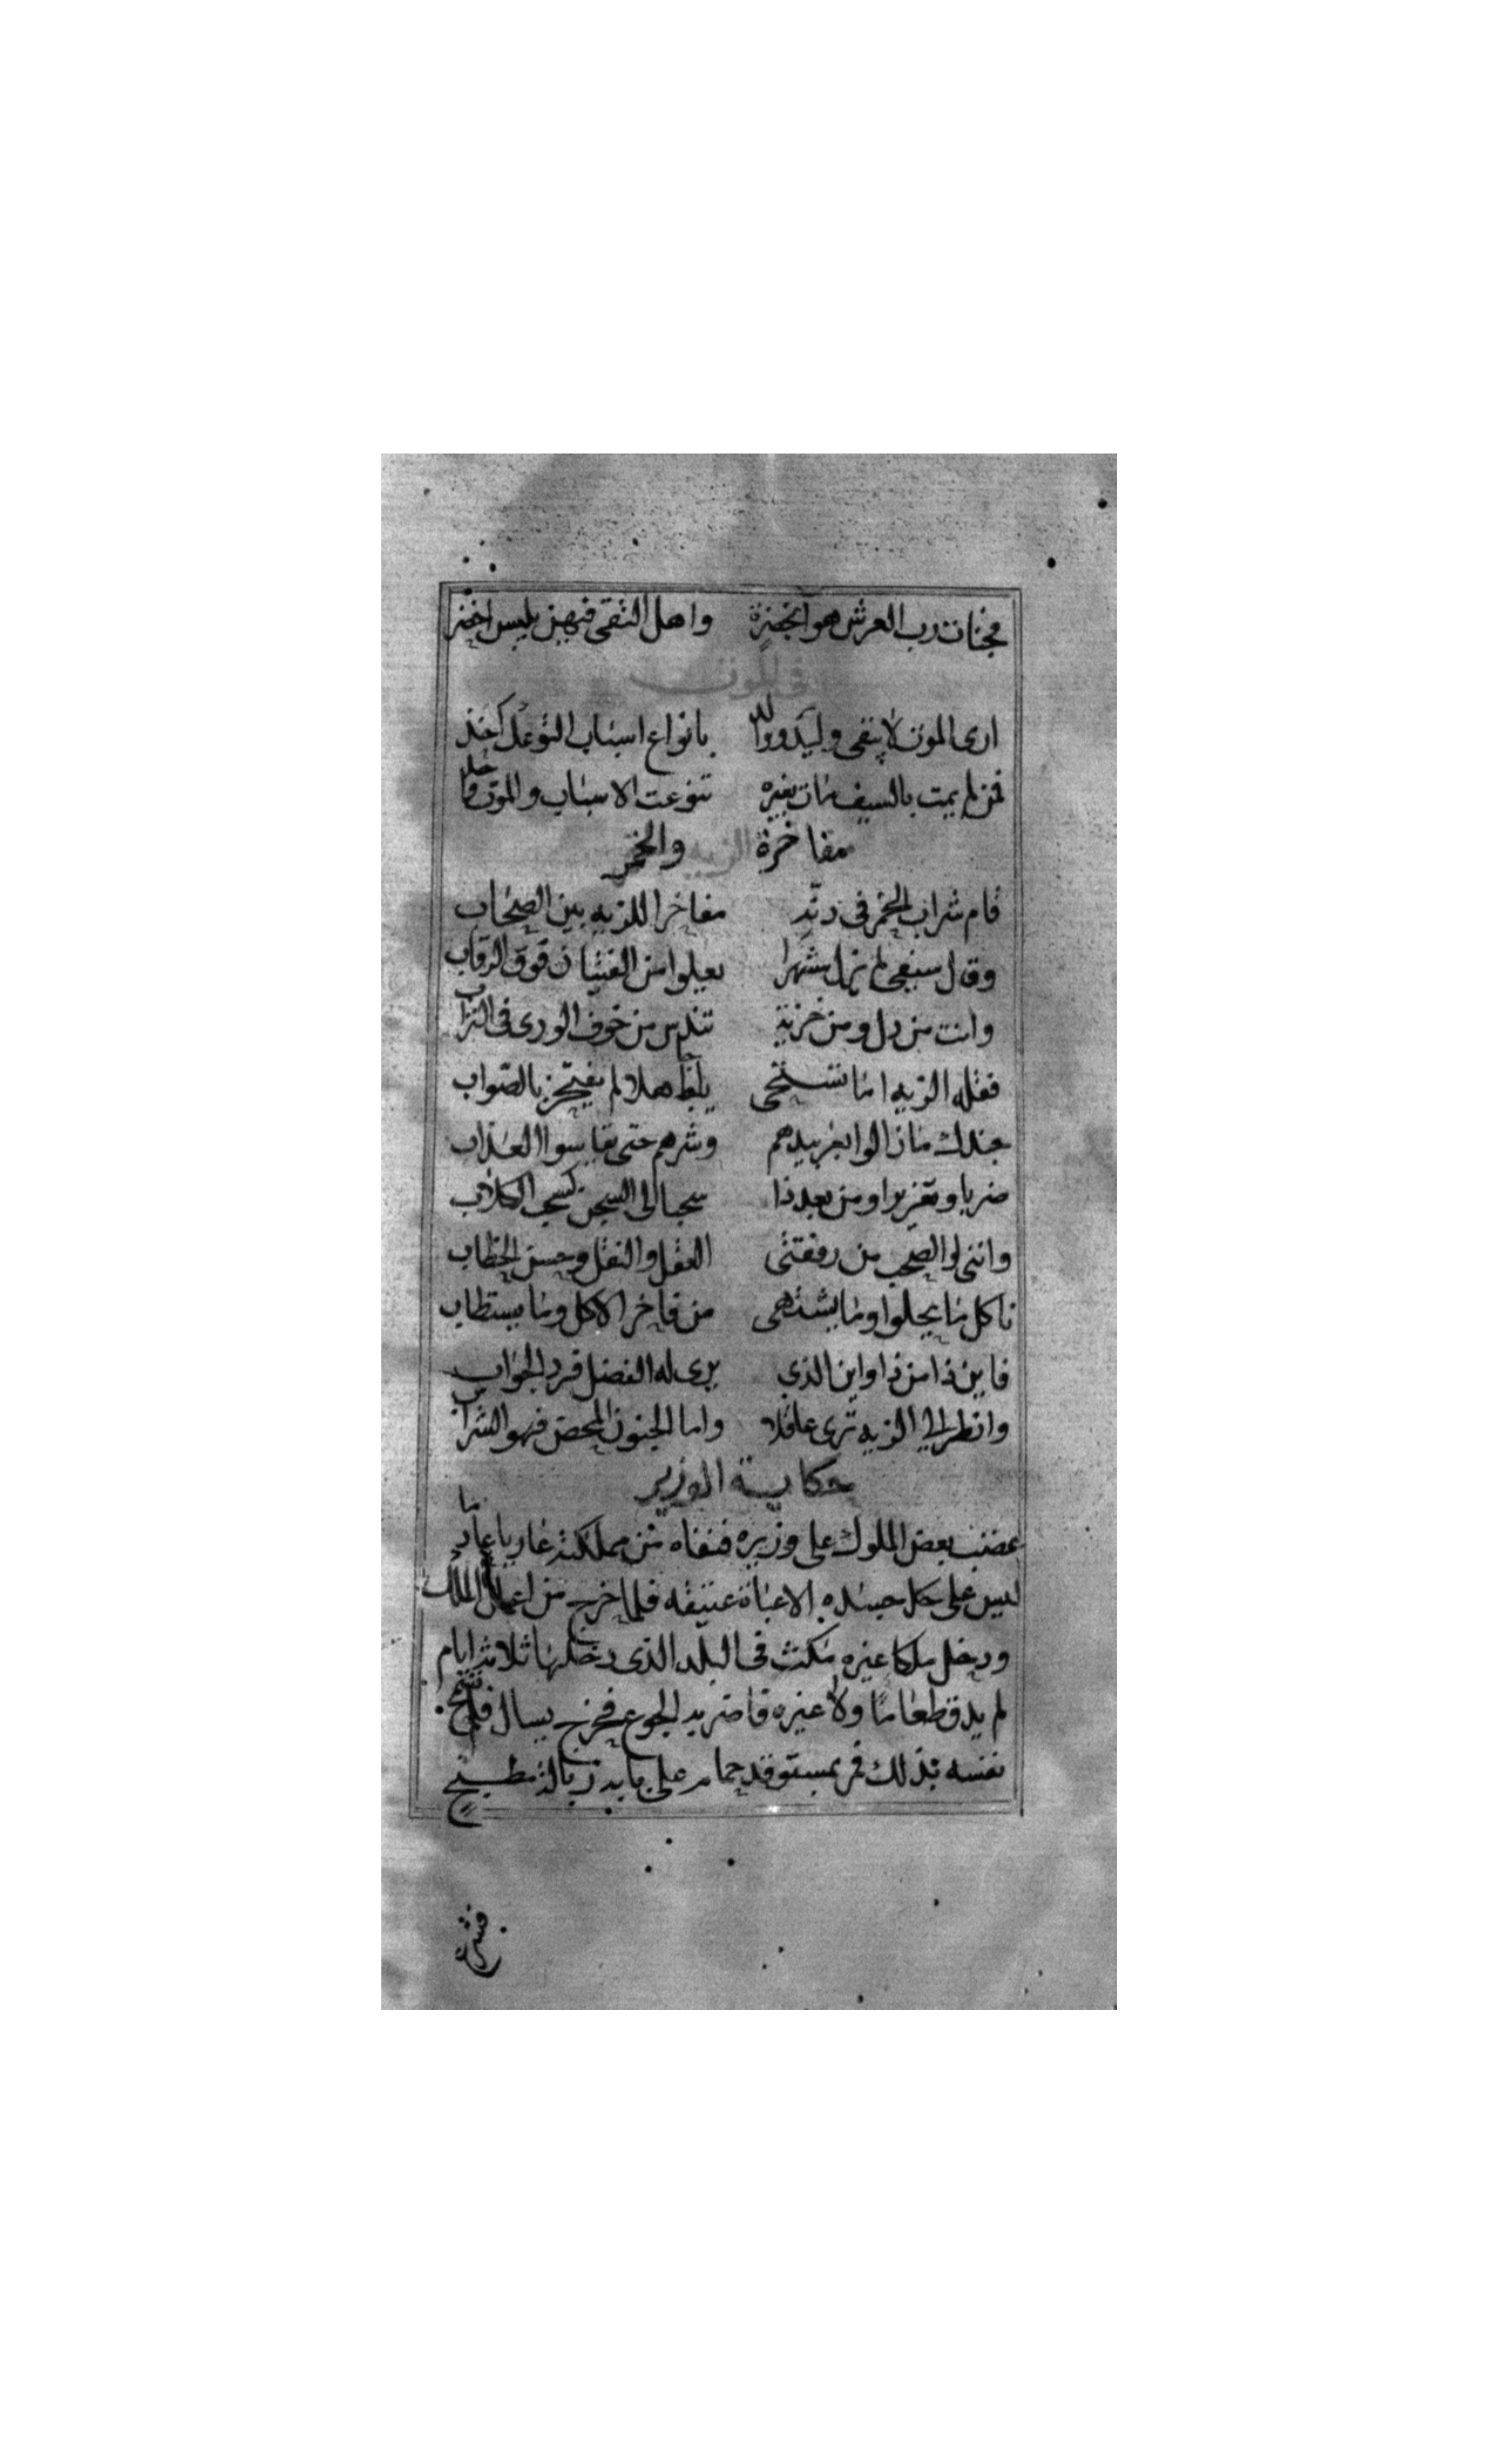 فجنات رب العرش هو الجنة واهل التقى فيهن يلبس اخضر
في الموت
ارى الموت لا يبقي وليدا ووالد بانواع اسباب التوعك اخذ
فمن لم يمت بالسيف مات بغيره تنوعت الاسباب والموت واحد
مفاخرة الزيه والخمر
قام شراب الخمر في دنه مفاخرا للزيه بين الصحاب
وقال سيفي لم يزل مشهرا يعيلوا من الفتيان فوق الرقاب
وانت من دل ومن خزية تندس من خوف الورى في التراب
فقله الزيه اما تستحي يافظ هلا لم يفتخر بالصواب
جندك ما زالوا بعربيدهم وشرهم حتى يقاسوا العذاب
ضربا وتعزيرا ومن بعد ذا سحبا الى السجن كسحب الكلاب
وانني لو الصحب من رفقتي العقل والنقل وحسن الخطاب
ناكل ما يحلوا وما يشتهى من فاخر الاكل وما يستطاب
فاين ذا من ذا واين الذي يرى له الفضل فرد الجواب
وانظر الى الزيه ترى عاقلا واما الجنون المحض فهو الشراب
حكاية الوزير
غضب بعض الملوك على وزيره فنفاه من مملكته عاريا عاد ما
ليس على جسده الا عباة عتيقه فلما خرج من اعمال الملك
ودخل ملكا غيره مكث في البلد الذي دخلها ثلاثة ايام
لم يدق طعاما ولا غيره فاضر به الجوع فخرج يسال فلم تسمح
نفسه بذلك فمر بمستوقد حمام على بابه زبال مطبخ
فشرع